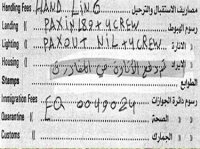 Handling Fees HAND LING مصاريف الاستقبال والترحيل
Landing (( PAXINLRO74CREW (( رسوم الهبوط
Lighting (( PAXOUT NIL+4CREW (( الانارة
Housing (( تم دفع الانارة في المغادرة (( الايواء
Stamps الطوابع
Immigration Fees EQ 0049024 رسوم دائرة الجوازات
Quarantine (( الصحة
Customs (( الجمارك